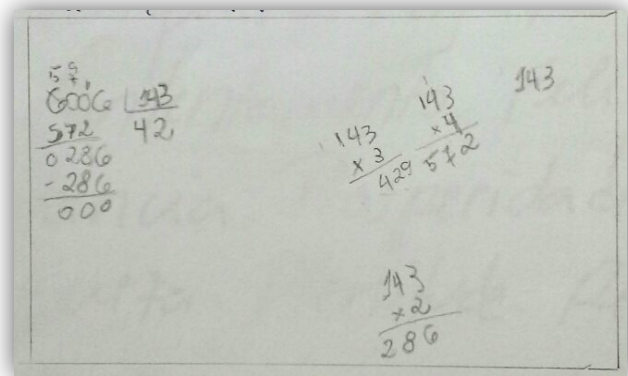 5 9
6006 143
572 42
0286
- 286
000
143
x 3
429
1
143
x 4
572
143
143
x 2
286